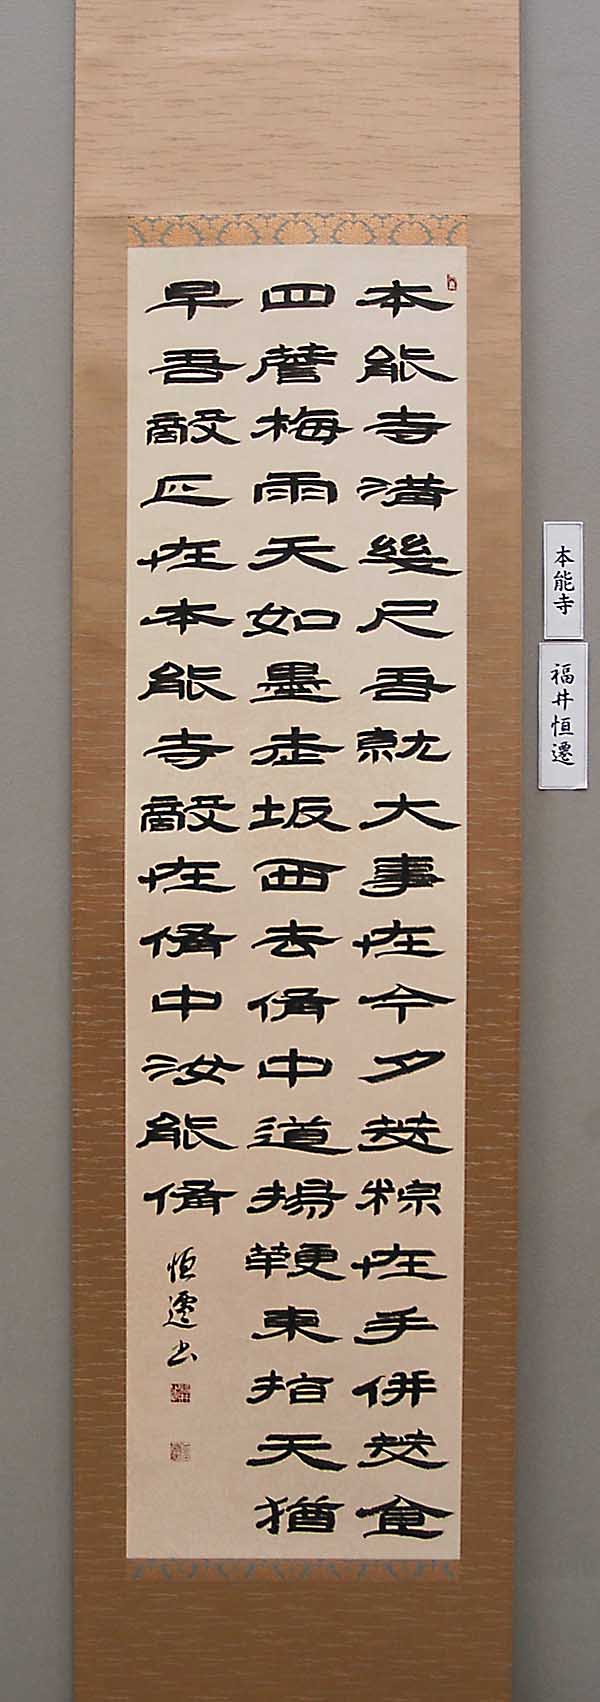 本能寺溝幾尺吾就大事在今夕茭粽在手併茭食
四簷梅雨天如墨老坂西去備中道揚鞭東指天猶
早吾敵正在本能寺敵在備中汝能備
恒遷書
本能寺
福井恒遷